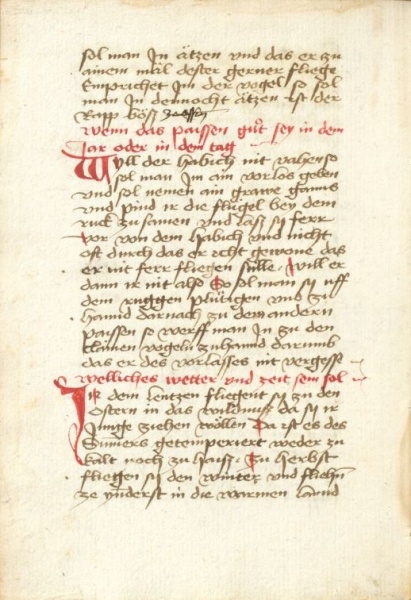 sol man Jn ätzen vnd das er zu
ainem mäl dester gerner fliege
Emprichet Jm der vogel so sol
man Jn dennocht ätzen ist der
Rapp böß zeessen
wenn das paissen gůt sey in dem
Jar oder in dem tag
Wyll der habich nit vahen so
sol man Jm ain vorlos geben
vnd sol nemen ain grawe ganns
vnd pind ir die flügel bey dem
ruck zusamen vnd lass sy ferr
vor von dem habich vnd nicht
oft durch das er echt gewone das
er nit ferr fliegen sülle will er
dann ir nit also So sol man sy vff
dem ruggen plůtigen vnd zu
hannd darnach zu dem andern
paissen so werff man Jn zu den
klainen vogeln zuhannd darumb
das er des vorlasses nit vergesse
welliches wetter vnd zeit sein sol
Jn dem lentzen fliegent sy zu den
Ostern in das wildnuß da sy ir
Junge ziehen wöllen Da ist es des
Sumers getemperiert weder zu
kalt noch zu haiß Zu herbst
fliegen sy den winter vnd fliehn
ze vnderst in die warmen lannd